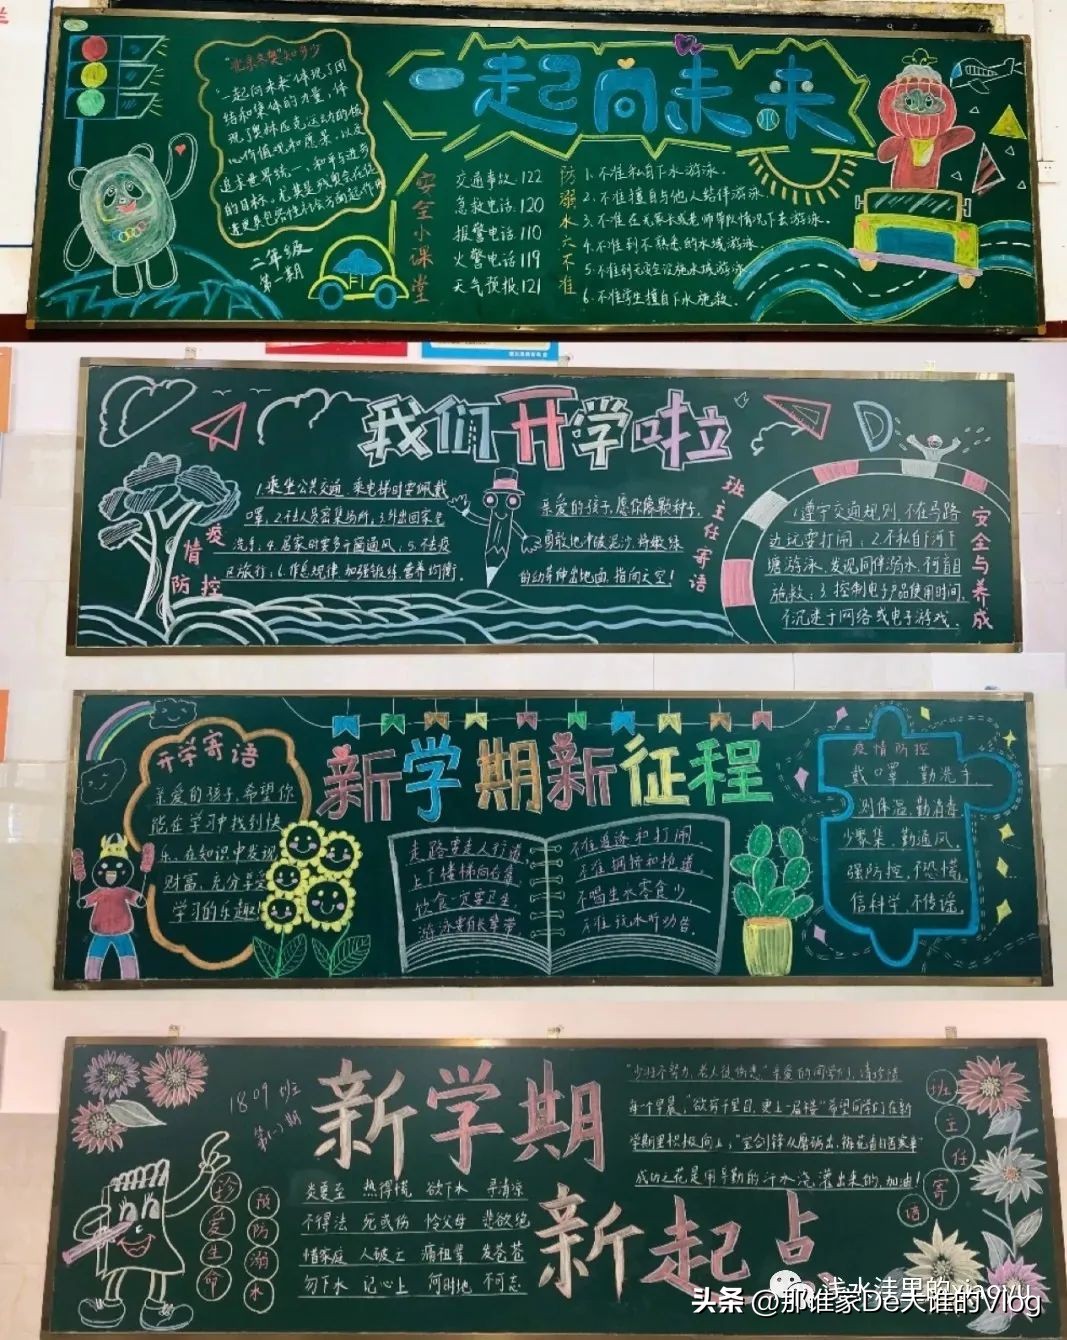 "北京冬奥"知多少
"一起向未来"体现了团
结和集体的力量,体
现了奥林匹克运动的核
心价值观和愿景,以及
追求世界统一、和平与进步
的目标。尤其是残奥会在促
进更具包容性社会方面起作用
二年级
第一期
一起向未来
安全小课堂
交通事故:122
急救电话:120
报警电话:110
火警电话:119
天气预报:121
防溺水六不准
1.不准私自下水游泳。
2.不准擅自与他人结伴游泳。
3.不准在无家长或老师带队情况下去游泳。
4.不准到不熟悉的水域游泳。
5.不准到无安全设施水域游泳。
6.不准学生擅自下水施救。
我们开学啦
疫情防控
1.乘坐公共交通、乘电梯时要佩戴
口罩;2.不去人员密集场所;3.外出回家先
洗手;4.居家时要多开窗通风;5.不去疫
区旅行;6.作息规律,加强锻炼,营养均衡。
亲爱的孩子,愿你像颗种子,
勇敢地冲破泥沙,将嫩绿
的幼芽伸出地面,指向天空!
班主任寄语
1.遵守交通规则,不在马路
边玩耍打闹;2.不私自下河下
塘游泳,发现同伴溺水,不盲目
施救;3.控制电子产品使用时间,
不沉迷于网络或电子游戏。
安全与养成
开学寄语
亲爱的孩子,希望你
能在学习中找到快
乐,在知识中发现
财富,充分享受
学习的乐趣!
新学期新征程
走路要走人行道,
上下楼梯向右靠,
饮食一定要卫生,
游泳要有长辈带,
不准追逐和打闹,
不准拥挤和抢道,
不喝生水零食少,
不准玩水听劝告。
疫情防控
戴口罩,勤洗手,
测体温,勤消毒,
少聚集,勤通风,
强防控,不恐慌,
信科学,不传谣。
1809班
第(一)期
新学期
新起点
珍爱生命
预防溺水
炎夏至 热得慌 欲下水 寻清凉
不得法 死或伤 怜父母 悲欲绝
惜家庭 人破亡 痛祖辈 发苍苍
勿下水 记心上 何时地 不可忘
"少壮不努力,老大徒伤悲"亲爱的同学们,请珍惜
每个早晨,"欲穷千里目,更上一层楼"希望同学们在新
学期里积极向上,"宝剑锋从磨砺出,梅花香自苦寒来"
成功之花是用辛勤的汗水浇灌出来的,加油!
班主任寄语
头条 @那谁家De大谁的Vlog